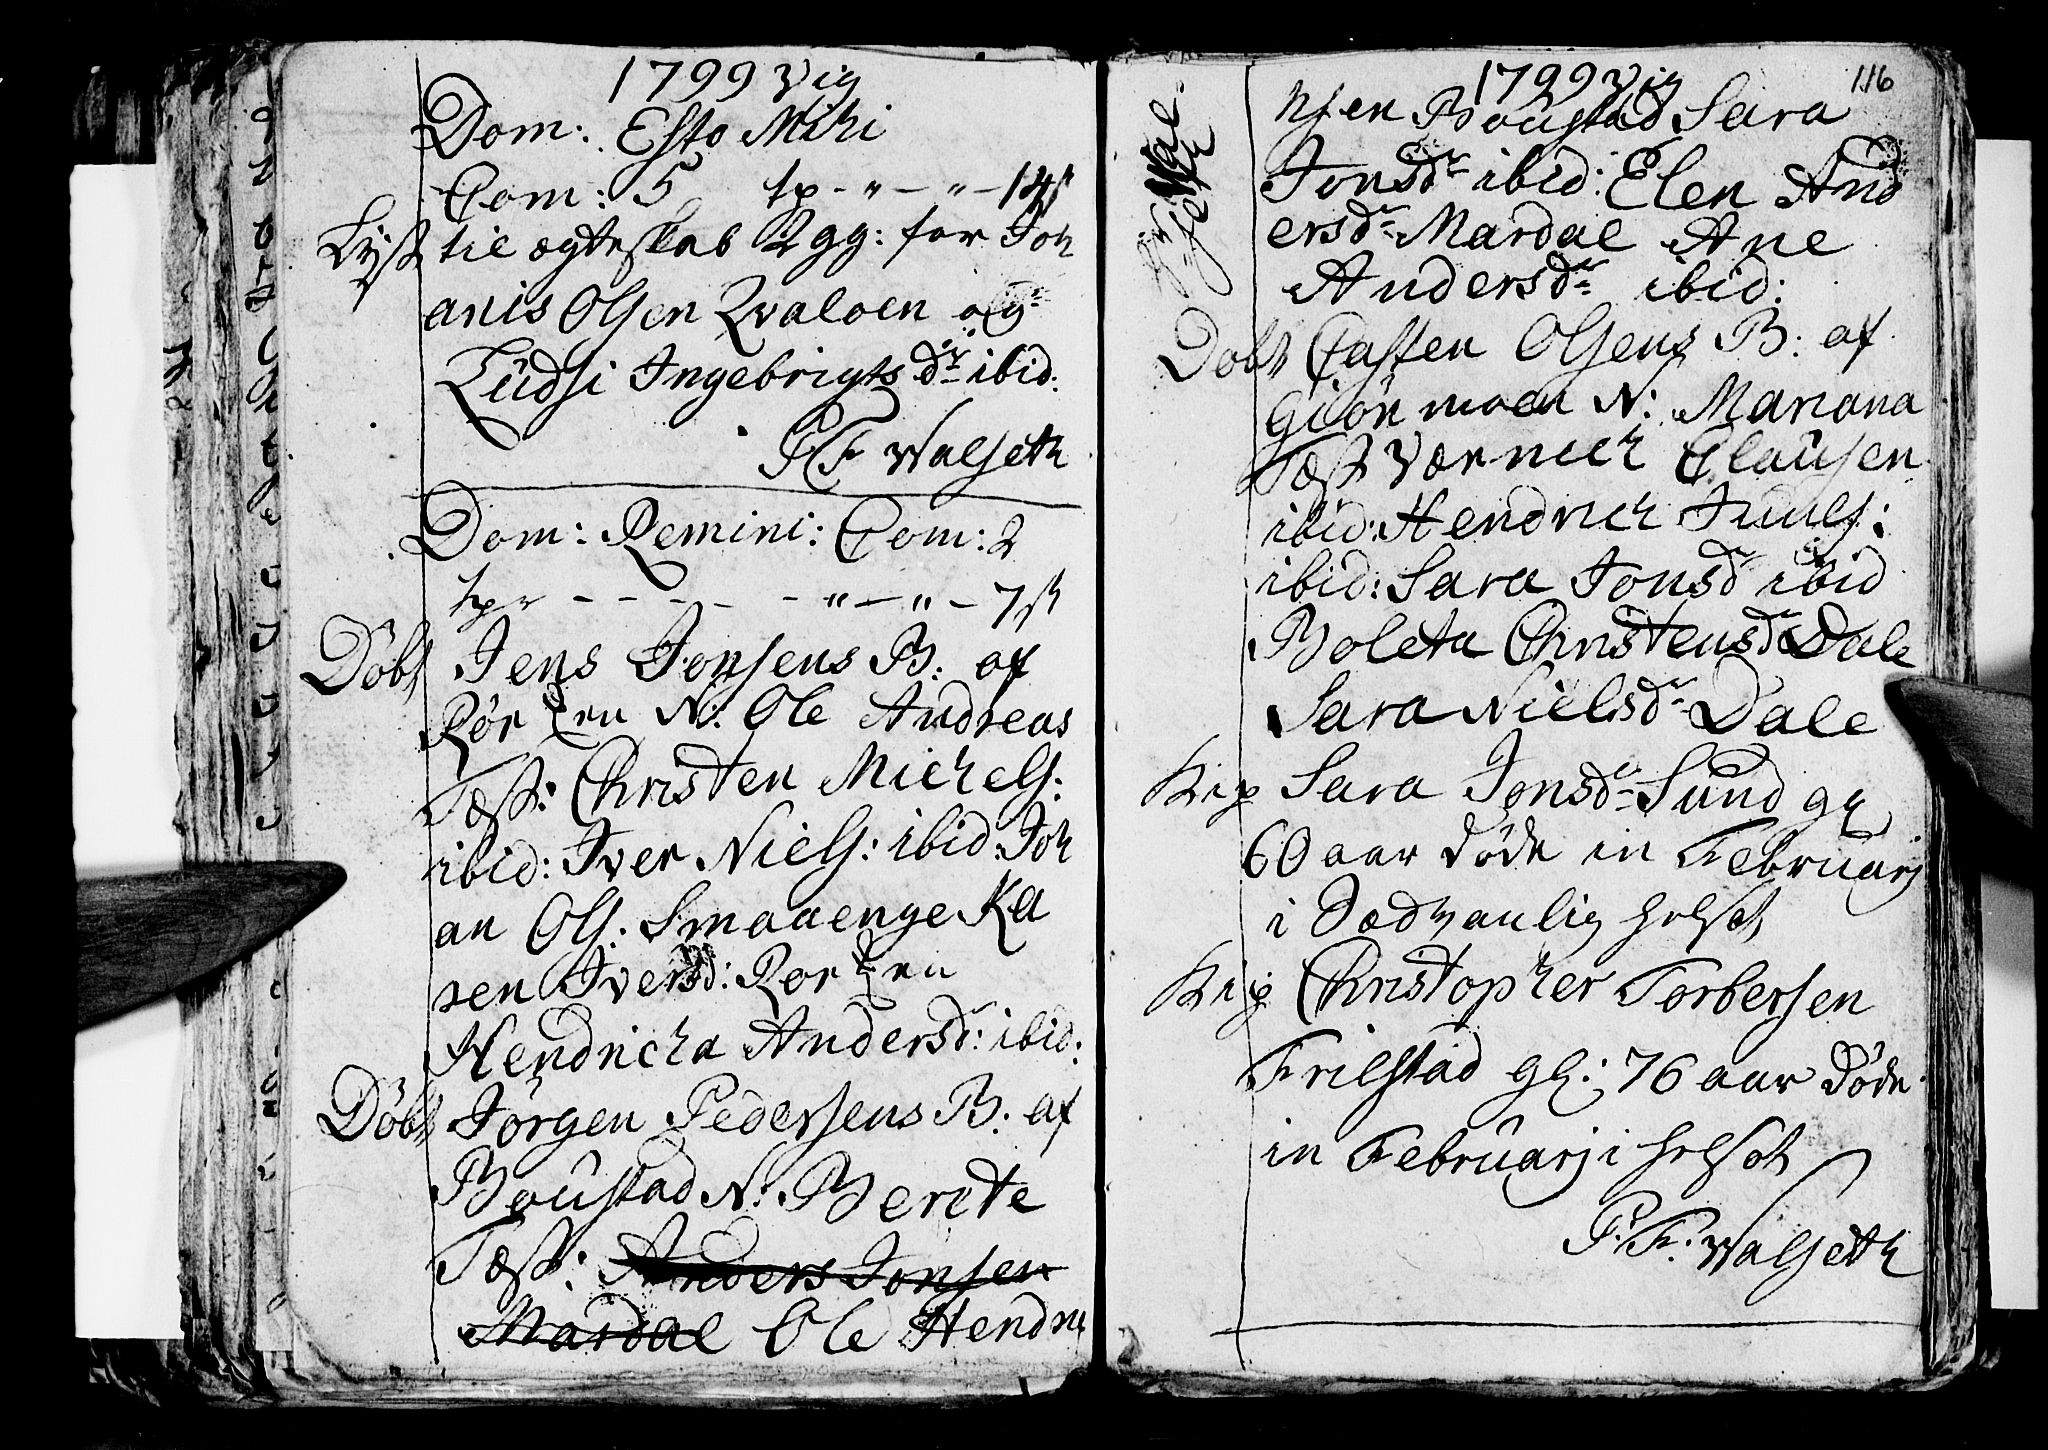 1799 Vig
Dom: Esto Mihi
Com: 5 tp - " - " - 14 ß
Lyst til ægteskab 2 gg: for Joh
anis Olsen Qvaloen og
Ludsi Ingebrigts dr ibid:
P F Walseth
Dom: Remini: Com: 2
tpr - - - - - " - " - 7 ß
Døbt Jens Jonsens B: af
Rør N: Ole Andreas
Tæst: Christen Michels:
ibid: Iver Niels: ibid: Joh
an Ols: Smaaenge Ka
ren Iversd: Ror
Hendricha Andersdr: ibid:
Døbt Jørgen Pedersens B: af
Boustad N: Berete
Tæst: Anders Jonsen
Mardal Ole Hendri
1799 Vig
116
hsen Boustad Sara
Jonsdr ibid: Elen And
ersdr Mardal Ane
Andersdr ibid:
Døbt Casten Olsens B: af
Giönmoen N: Mariana
Tæst Værnich Clausen
ibid: Hendrich Juuls:
ibid: Sara Jonsdr ibid
Boleta Christensdr Dale
Sara Nielsdr Dale
Kip Sara Jonsdr Sund gl
60 aar døde in Februarj
i Sædvanlig helsot
Kip Christopher Torbersen
Frilstad gl: 76 aar døde
in Februarj i helsot
P: F: Walseth